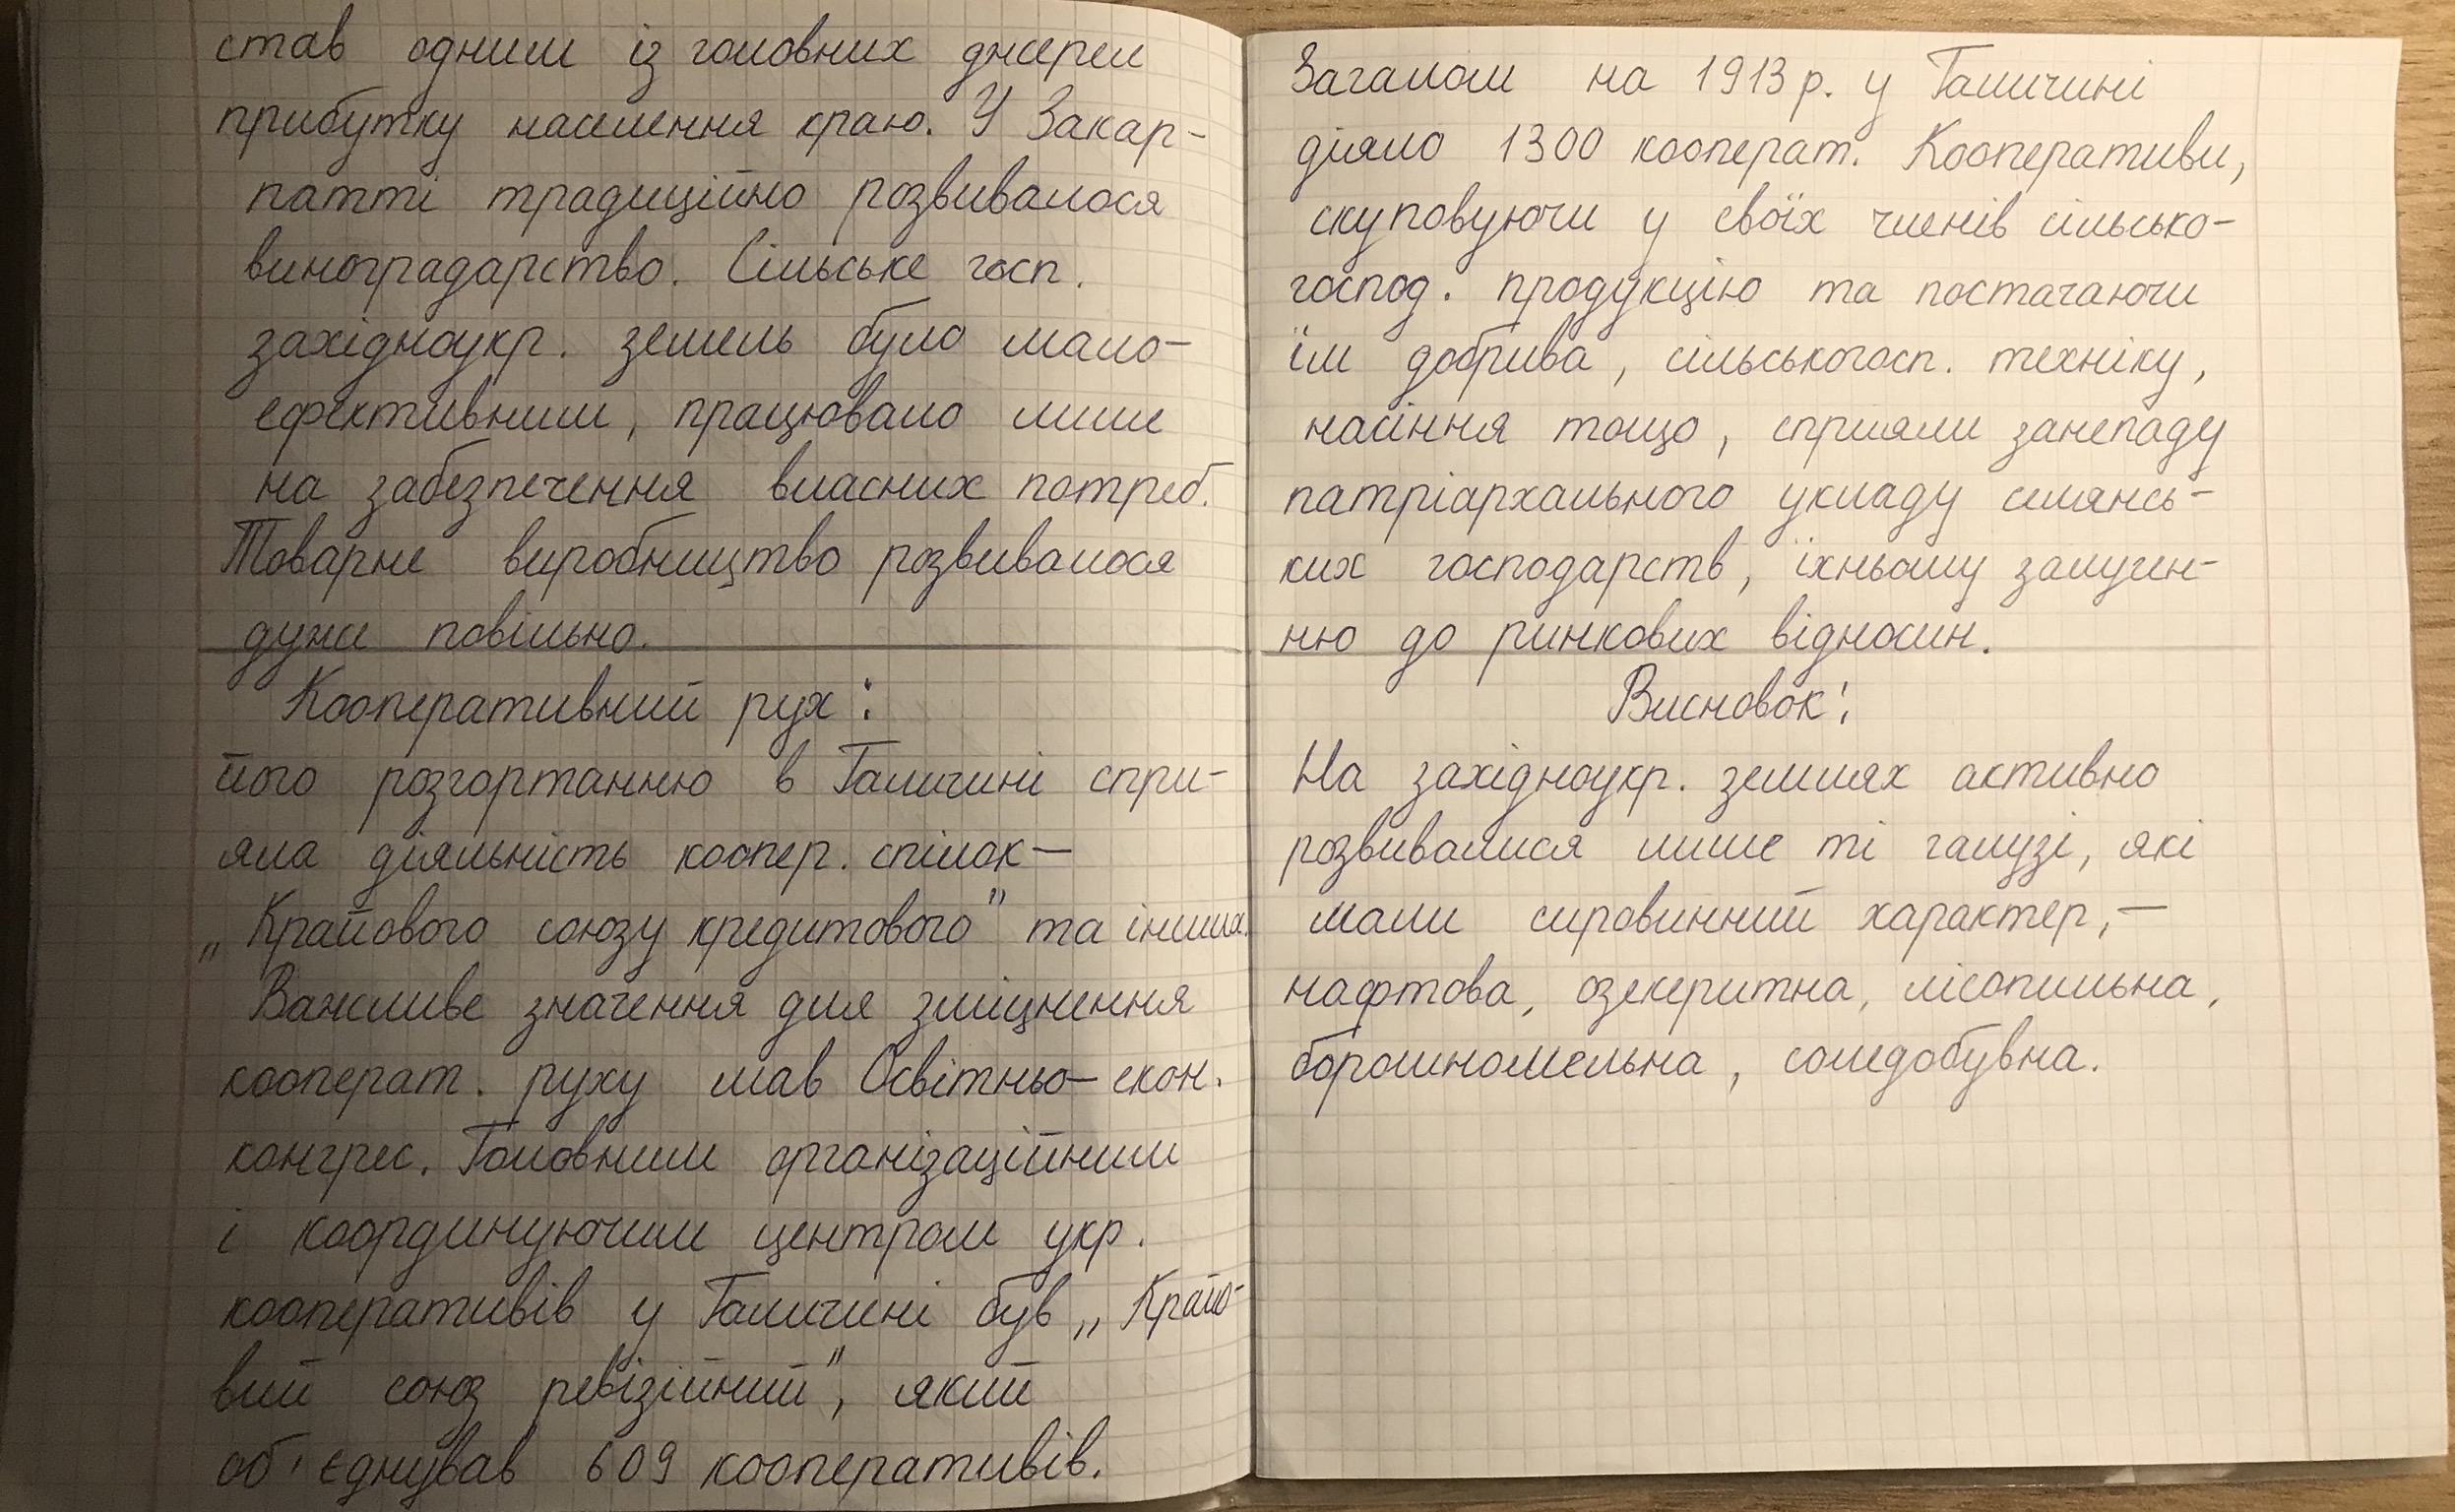 став одним із головних джерел
прибутку населення краю. У Закар-
патті традиційно розвивалося
виноградарство. Сільське госп.
західноукр. земель було мало-
ефективним, працювало лише
на забезпечення власних потреб.
Товарне виробництво розвивалося
дуже повільно.
Кооперативний рух:
його розгортанню в Галичині спри-
яла діяльність коопер. спілок—
„Крайового союзу кредитового" та інших.
Важливе значення для зміцнення
кооперат. руху мав Освітньо-екон.
конгрес. Головним організаційним
і координуючим центром укр.
кооперативів у Галичині був „Крайо-
вий союз ревізійний", який
об'єднував 609 кооперативів.
Загалом на 1913 р. у Галичині
діяло 1300 кооперат. Кооперативи,
скуповуючи у своїх членів сільсько-
господ. продукцію та постачаючи
їм добрива, сільськогосп. техніку,
насіння тощо, сприяли занепаду
патріархального укладу селянсь-
ких господарств, їхньому залучен-
ню до ринкових відносин.
Висновок:
На західноукр. землях активно
розвивалися лише ті галузі, які
мали сировинний характер,—
нафтова, озекеритна, лісопильна,
борошномельна, соледобувна.